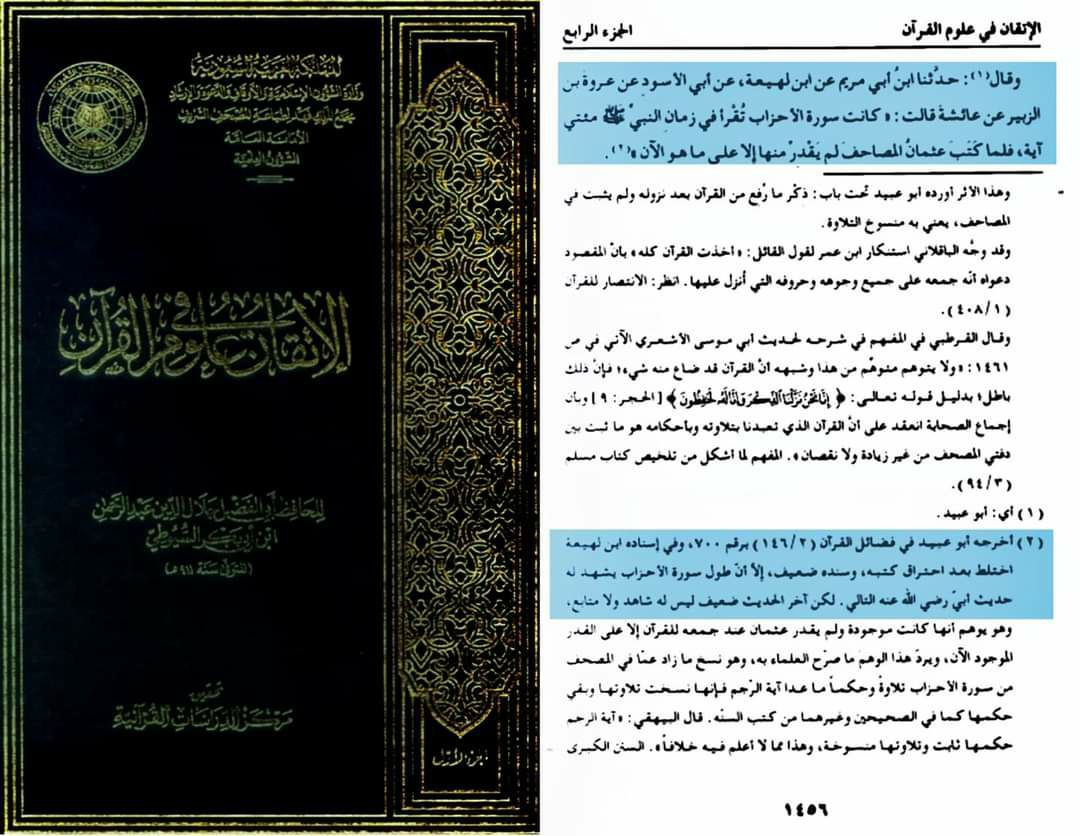 المملكة العربية السعودية
وزارة الشؤون الإسلامية والأوقاف والدعوة والإرشاد
مجمع الملك فهد لطباعة المصحف الشريف
الأمانة العامة
الشؤون العلمية
الإتقان في علوم القرآن
للحافظ أبي الفضل جلال الدين عبد الرحمن
ابن أبي بكر السيوطي
(المتوفى سنة ٩١١ هـ)
تحقيق
مركز الدراسات القرآنية
الجزء الأول
الإتقان في علوم القرآن الجزء الرابع
وقال(١): حدَّثنا ابنُ أبي مريم عن ابن لهيعة، عن أبي الأسود عن عروة بن
الزبير عن عائشة قالت: «كانت سورة الأحزاب تُقْرأ في زمان النبيّ ﷺ مئتي
آية، فلما كَتَبَ عثمانُ المصاحفَ لم يَقْدِرْ منها إلا على ما هو الآن»(٢).
وهذا الأثر أورده أبو عبيد تحت باب: ذكْر ما رُفع من القرآن بعد نزوله ولم يثبت في
المصاحف، يعني به منسوخ التلاوة.
وقد وجَّه الباقلاني استنكار ابن عمر لقول القائل: «أخذت القرآن كله» بأنّ المقصود
دعواه أنّه جمعه على جميع وجوهه وحروفه التي أُنزل عليها. انظر: الانتصار للقرآن
(٤٠٨/١).
وقال القرطبي في المفهم في شرحه لحديث أبي موسى الأشعري الآتي في ص
١٤٦١: «ولا يتوهم متوهّم من هذا وشبهه أنّ القرآن قد ضاع منه شيء؛ فإنّ ذلك
باطل؛ بدليل قوله تعالى: ﴿إِنَّا نَحْنُ نَزَّلْنَا الذِّكْرَ وَإِنَّا لَهُ لَحَافِظُونَ﴾ [الحجر: ٩] وبأن
إجماع الصحابة انعقد على أنّ القرآن الذي تعبدنا بتلاوته وبأحكامه هو ما ثبت بين
دفتي المصحف من غير زيادة ولا نقصان». المفهم لما أشكل من تلخيص كتاب مسلم
(٩٤/٣).
(١) أي: أبو عبيد.
(٢) أخرجه أبو عبيد في فضائل القرآن (١٤٦/٢) برقم ٧٠٠، وفي إسناده ابن لهيعة
اختلط بعد احتراق كتبه، وسنده ضعيف، إلاّ أنّ طول سورة الأحزاب يشهد له
حديث أبيّ رضي الله عنه التالي. لكن آخر الحديث ضعيف ليس له شاهد ولا متابع،
وهو يوهم أنها كانت موجودة ولم يقدر عثمان عند جمعه للقرآن إلا على القدر
الموجود الآن، ويردّ هذا الوهمَ ما صرّح العلماء به، وهو نسخ ما زاد عمّا في المصحف
من سورة الأحزاب تلاوةً وحكماً ما عدا آية الرّجم فإنها نسخت تلاوتها وبقي
حكمها كما في الصحيحين وغيرهما من كتب السنّة. قال البيهقي: «آية الرجم
حكمها ثابت وتلاوتها منسوخة، وهذا مما لا أعلم فيه خلافاً». السنن الكبرى
١٤٥٦